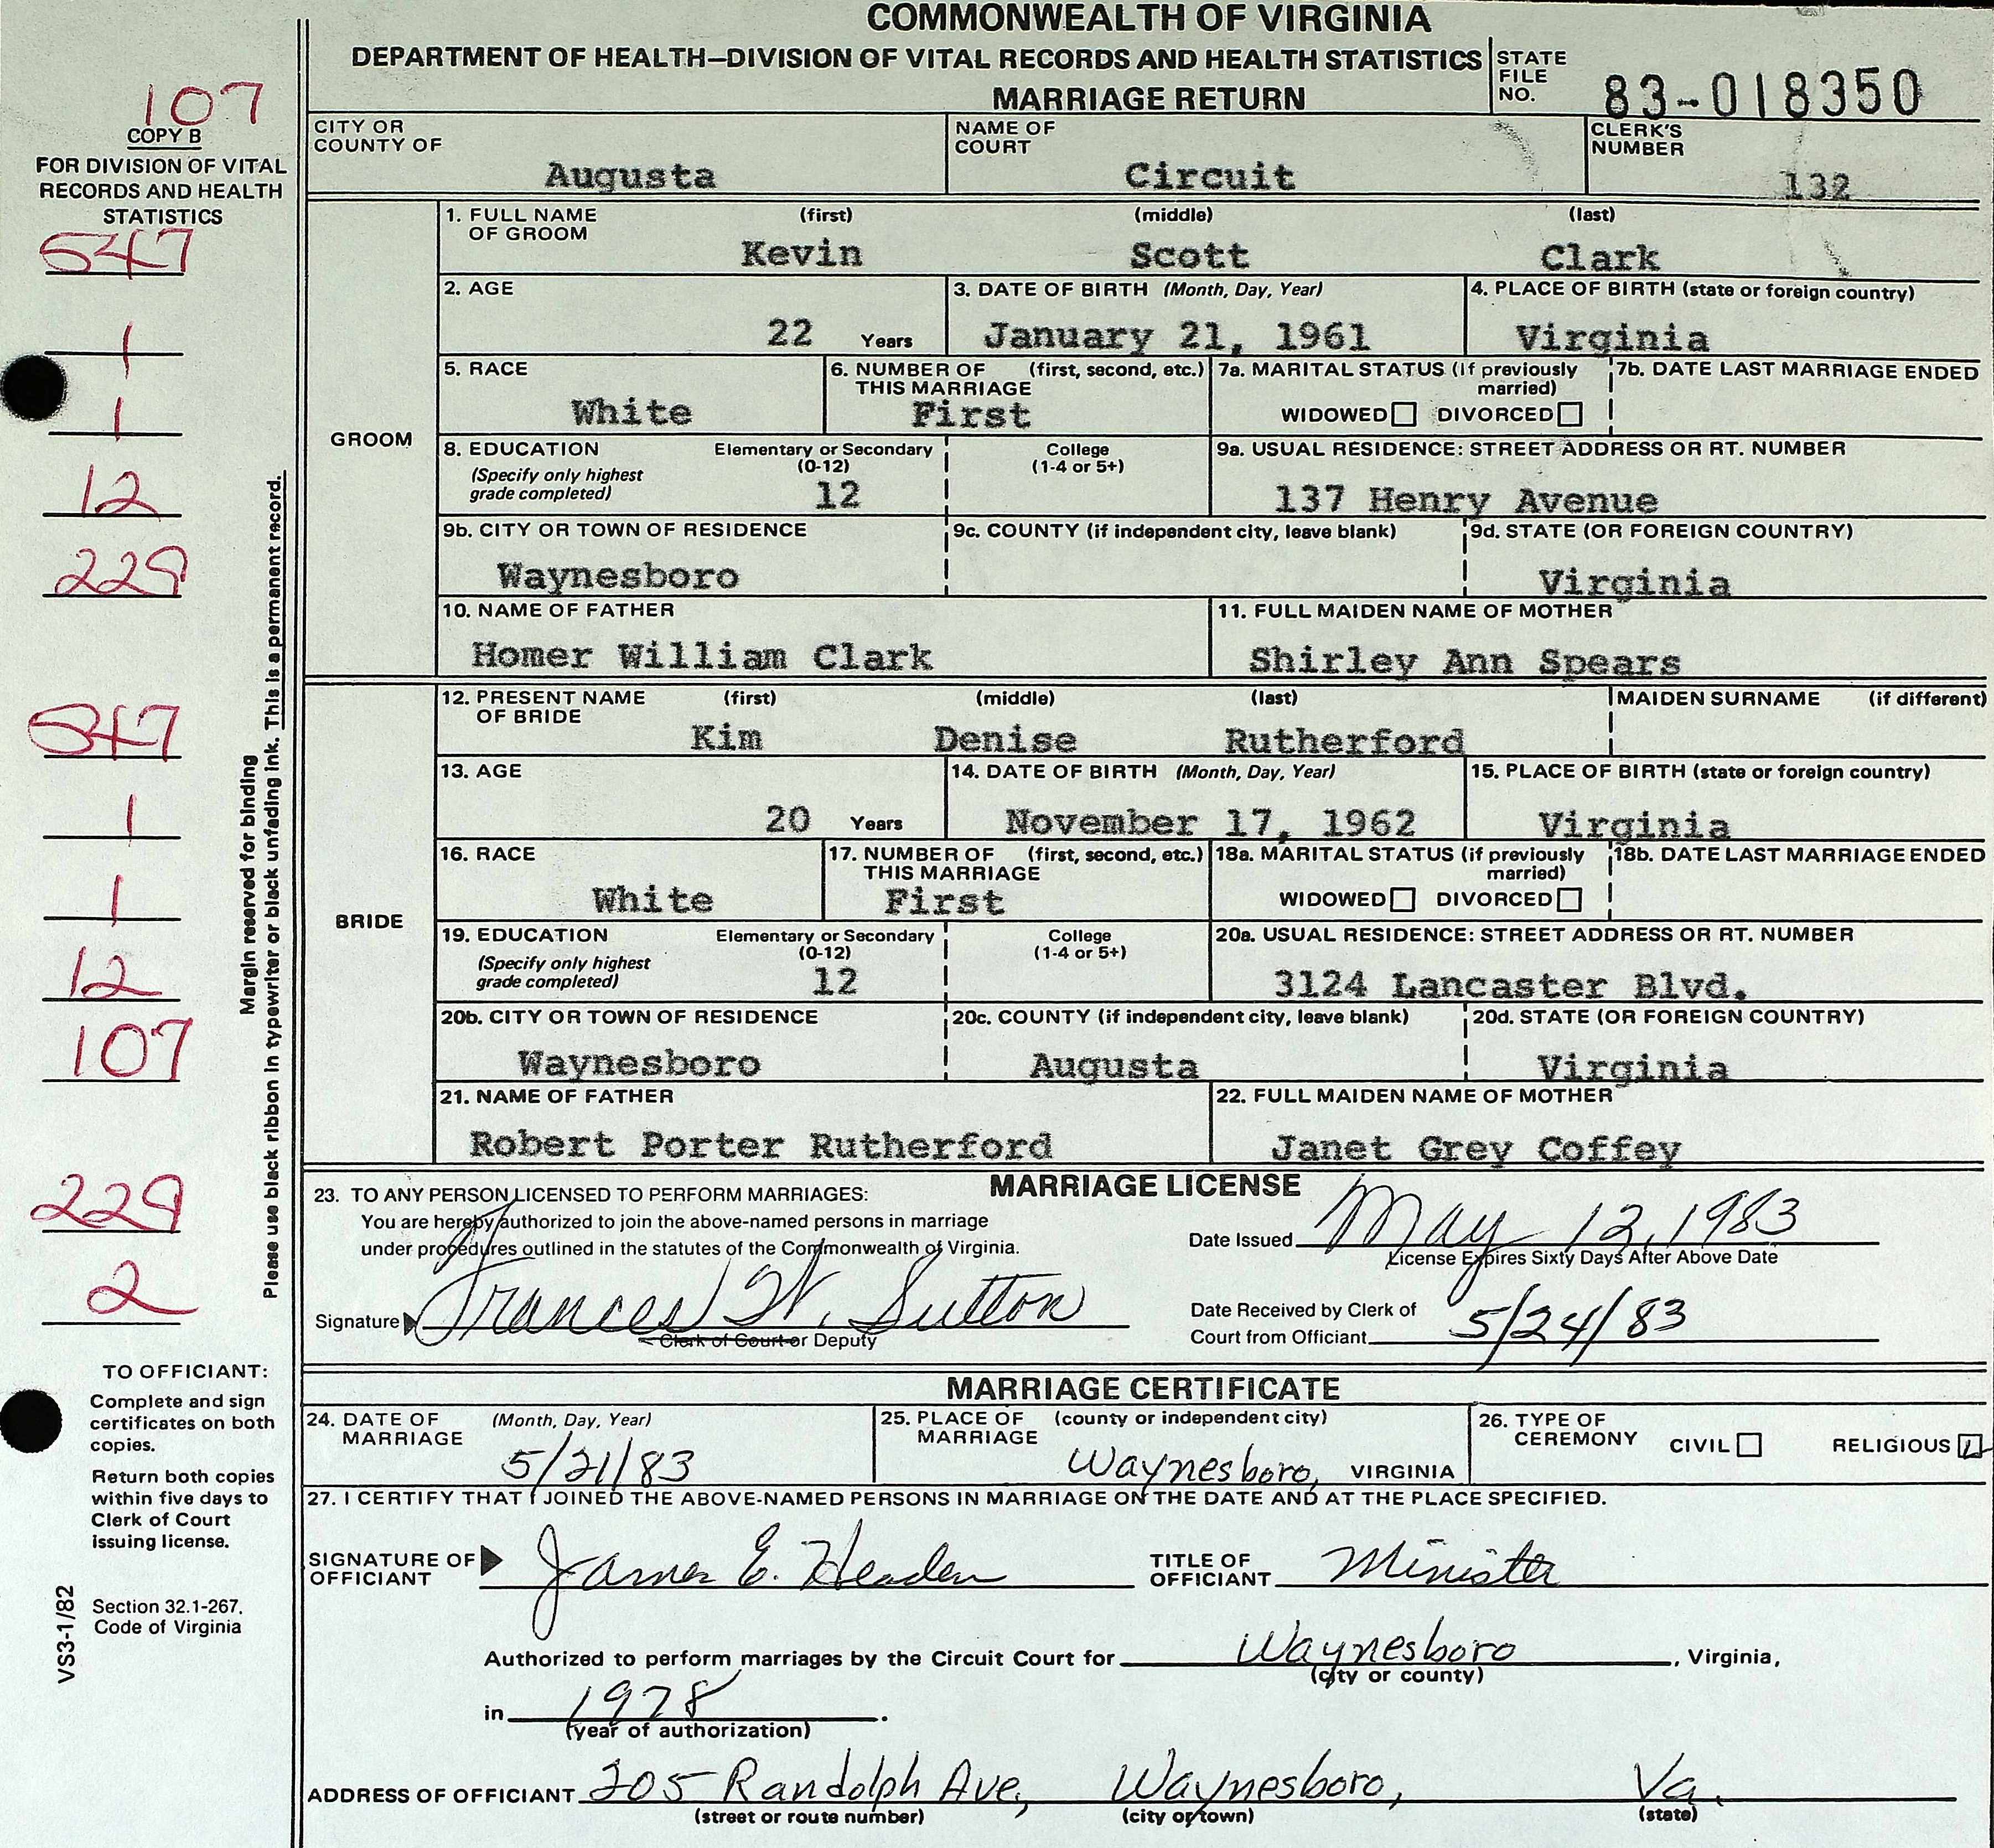 COMMONWEALTH OF VIRGINIA
DEPARTMENT OF HEALTH—DIVISION OF VITAL RECORDS AND HEALTH STATISTICS
MARRIAGE RETURN
STATE FILE NO. 83-018350
107
COPY B
FOR DIVISION OF VITAL
RECORDS AND HEALTH
STATISTICS
CITY OR COUNTY OF Augusta
NAME OF COURT Circuit
CLERK'S NUMBER 132
547
1
1
12
229
547
1
1
12
107
229
2
Margin reserved for binding
Please use black ribbon in typewriter or black unfading ink. This is a permanent record.
GROOM
1. FULL NAME OF GROOM (first) (middle) (last)
Kevin Scott Clark
2. AGE 22 Years
3. DATE OF BIRTH (Month, Day, Year) January 21, 1961
4. PLACE OF BIRTH (state or foreign country) Virginia
5. RACE White
6. NUMBER OF THIS MARRIAGE (first, second, etc.) First
7a. MARITAL STATUS (if previously married) WIDOWED DIVORCED
7b. DATE LAST MARRIAGE ENDED
8. EDUCATION (Specify only highest grade completed) Elementary or Secondary (0-12) 12 College (1-4 or 5+)
9a. USUAL RESIDENCE: STREET ADDRESS OR RT. NUMBER 137 Henry Avenue
9b. CITY OR TOWN OF RESIDENCE Waynesboro
9c. COUNTY (if independent city, leave blank)
9d. STATE (OR FOREIGN COUNTRY) Virginia
10. NAME OF FATHER Homer William Clark
11. FULL MAIDEN NAME OF MOTHER Shirley Ann Spears
BRIDE
12. PRESENT NAME OF BRIDE (first) (middle) (last) MAIDEN SURNAME (if different)
Kim Denise Rutherford
13. AGE 20 Years
14. DATE OF BIRTH (Month, Day, Year) November 17, 1962
15. PLACE OF BIRTH (state or foreign country) Virginia
16. RACE White
17. NUMBER OF THIS MARRIAGE (first, second, etc.) First
18a. MARITAL STATUS (if previously married) WIDOWED DIVORCED
18b. DATE LAST MARRIAGE ENDED
19. EDUCATION (Specify only highest grade completed) Elementary or Secondary (0-12) 12 College (1-4 or 5+)
20a. USUAL RESIDENCE: STREET ADDRESS OR RT. NUMBER 3124 Lancaster Blvd.
20b. CITY OR TOWN OF RESIDENCE Waynesboro
20c. COUNTY (if independent city, leave blank) Augusta
20d. STATE (OR FOREIGN COUNTRY) Virginia
21. NAME OF FATHER Robert Porter Rutherford
22. FULL MAIDEN NAME OF MOTHER Janet Grey Coffey
MARRIAGE LICENSE
23. TO ANY PERSON LICENSED TO PERFORM MARRIAGES:
You are hereby authorized to join the above-named persons in marriage
under procedures outlined in the statutes of the Commonwealth of Virginia.
Date Issued May 12, 1983
License Expires Sixty Days After Above Date
Signature Frances W. Sutton
Clerk of Court or Deputy
Date Received by Clerk of
Court from Officiant 5/24/83
MARRIAGE CERTIFICATE
24. DATE OF MARRIAGE (Month, Day, Year) 5/21/83
25. PLACE OF MARRIAGE (county or independent city) Waynesboro, VIRGINIA
26. TYPE OF CEREMONY CIVIL RELIGIOUS
27. I CERTIFY THAT I JOINED THE ABOVE-NAMED PERSONS IN MARRIAGE ON THE DATE AND AT THE PLACE SPECIFIED.
SIGNATURE OF OFFICIANT James E. Headen
TITLE OF OFFICIANT Minister
Authorized to perform marriages by the Circuit Court for Waynesboro, Virginia,
(city or county)
in 1978.
(year of authorization)
ADDRESS OF OFFICIANT 205 Randolph Ave, Waynesboro, Va.
(street or route number) (city or town) (state)
TO OFFICIANT:
Complete and sign
certificates on both
copies.
Return both copies
within five days to
Clerk of Court
issuing license.
Section 32.1-267,
Code of Virginia
VS3-1/82